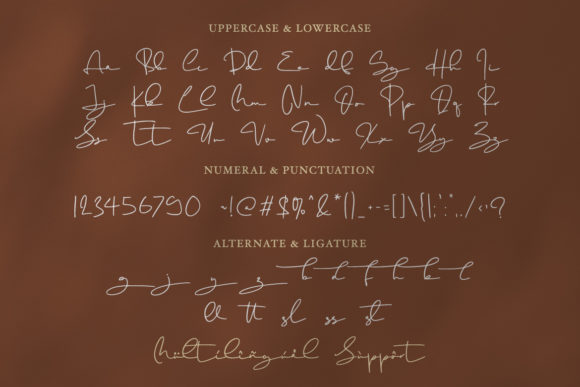 UPPERCASE & LOWERCASE
Aa Bb Cc Dd Ee df Gg Hh Ii
Jj Kk Ll Mm Nn Oo Pp Qq Rr
Ss Tt Uu Vv Ww Xx Yy Zz
NUMERAL & PUNCTUATION
1234567890 ~!@#$%^&*()_+-=[]\{|;':",./<>?
ALTERNATE & LIGATURE
g j y z b d f h k l
ll tt sl ss st
Multilingual Support